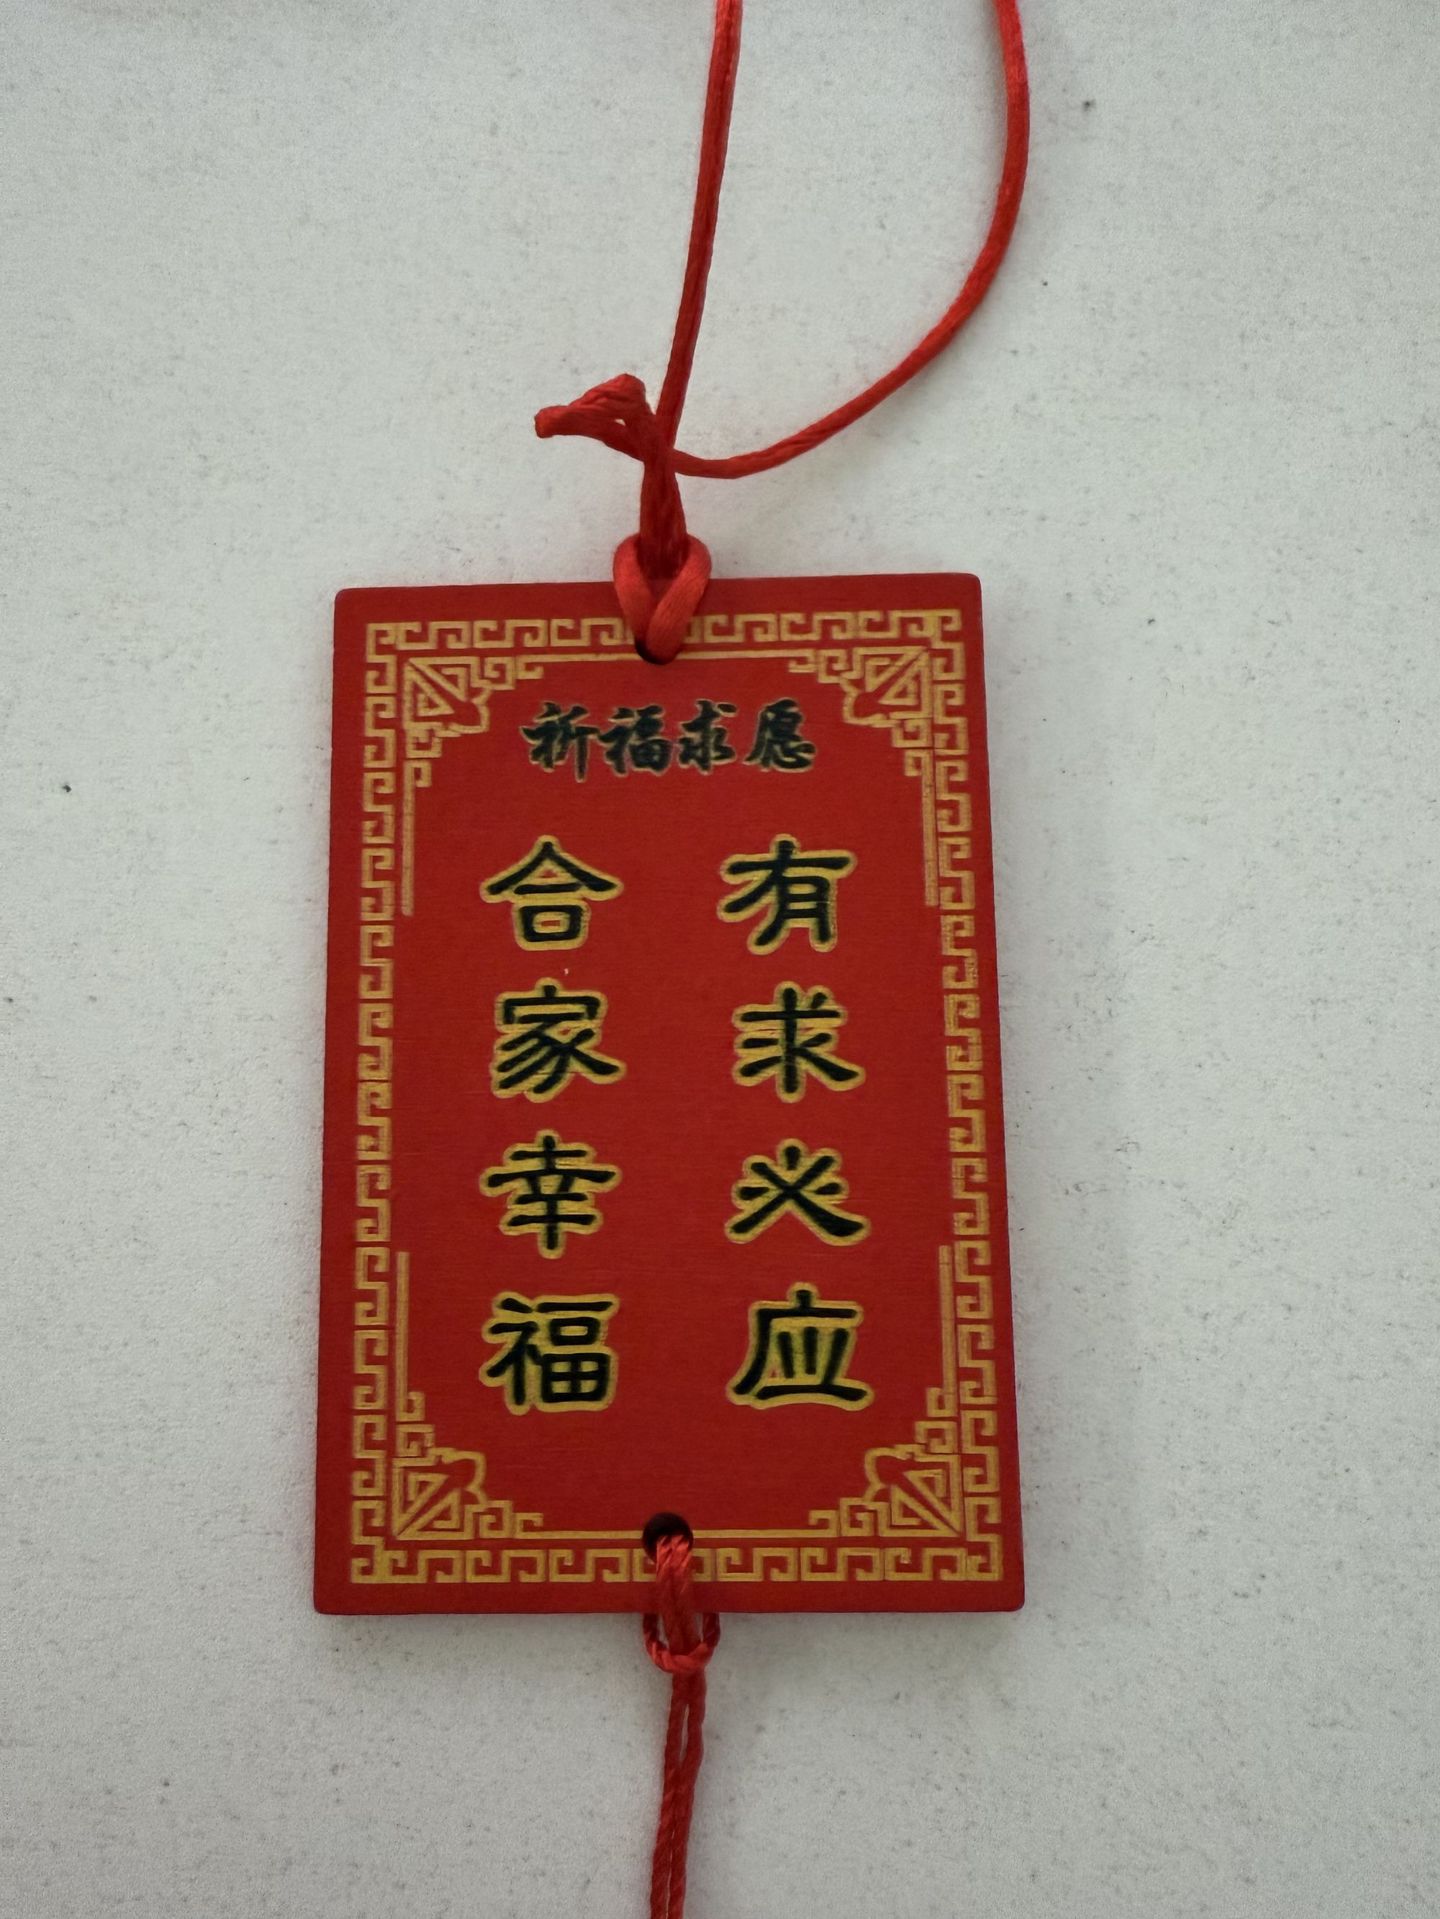 祈福求愿
有求必应
合家幸福